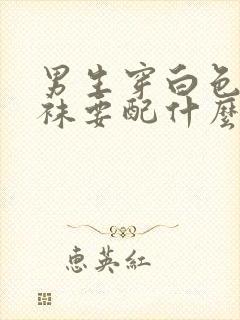 男生穿白色
袜要配什麼
惠英紅